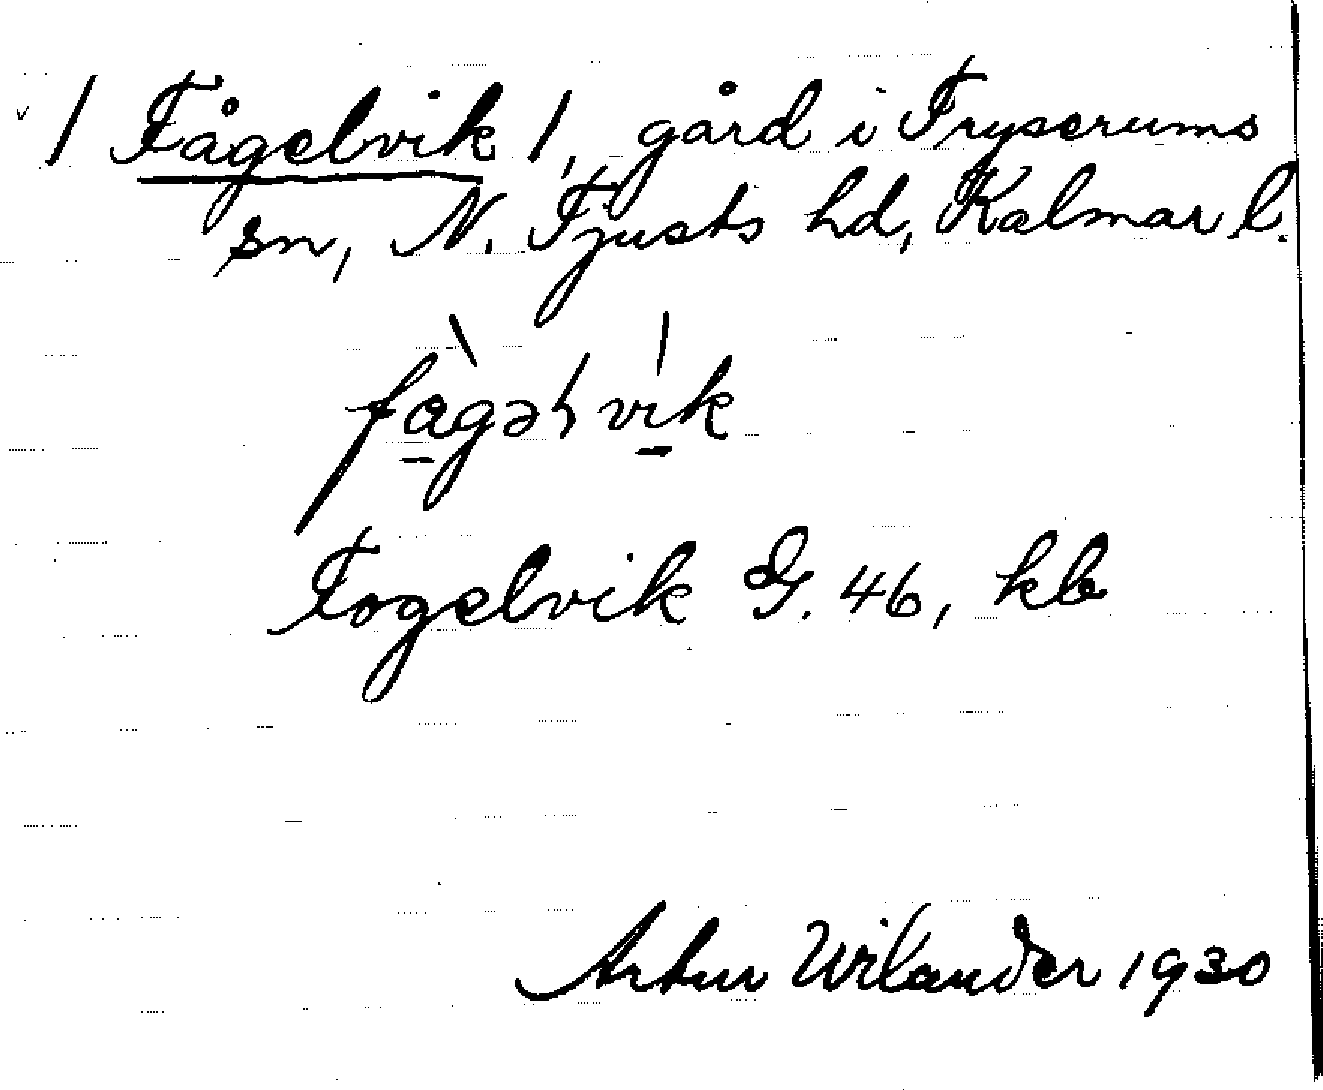 / Fågelvik /, gård i Tryserums
sn, N. Tjusts hd, Kalmar l.
fàgəlvik
Fogelvik G. 46, kb
Artur Wilander 1930